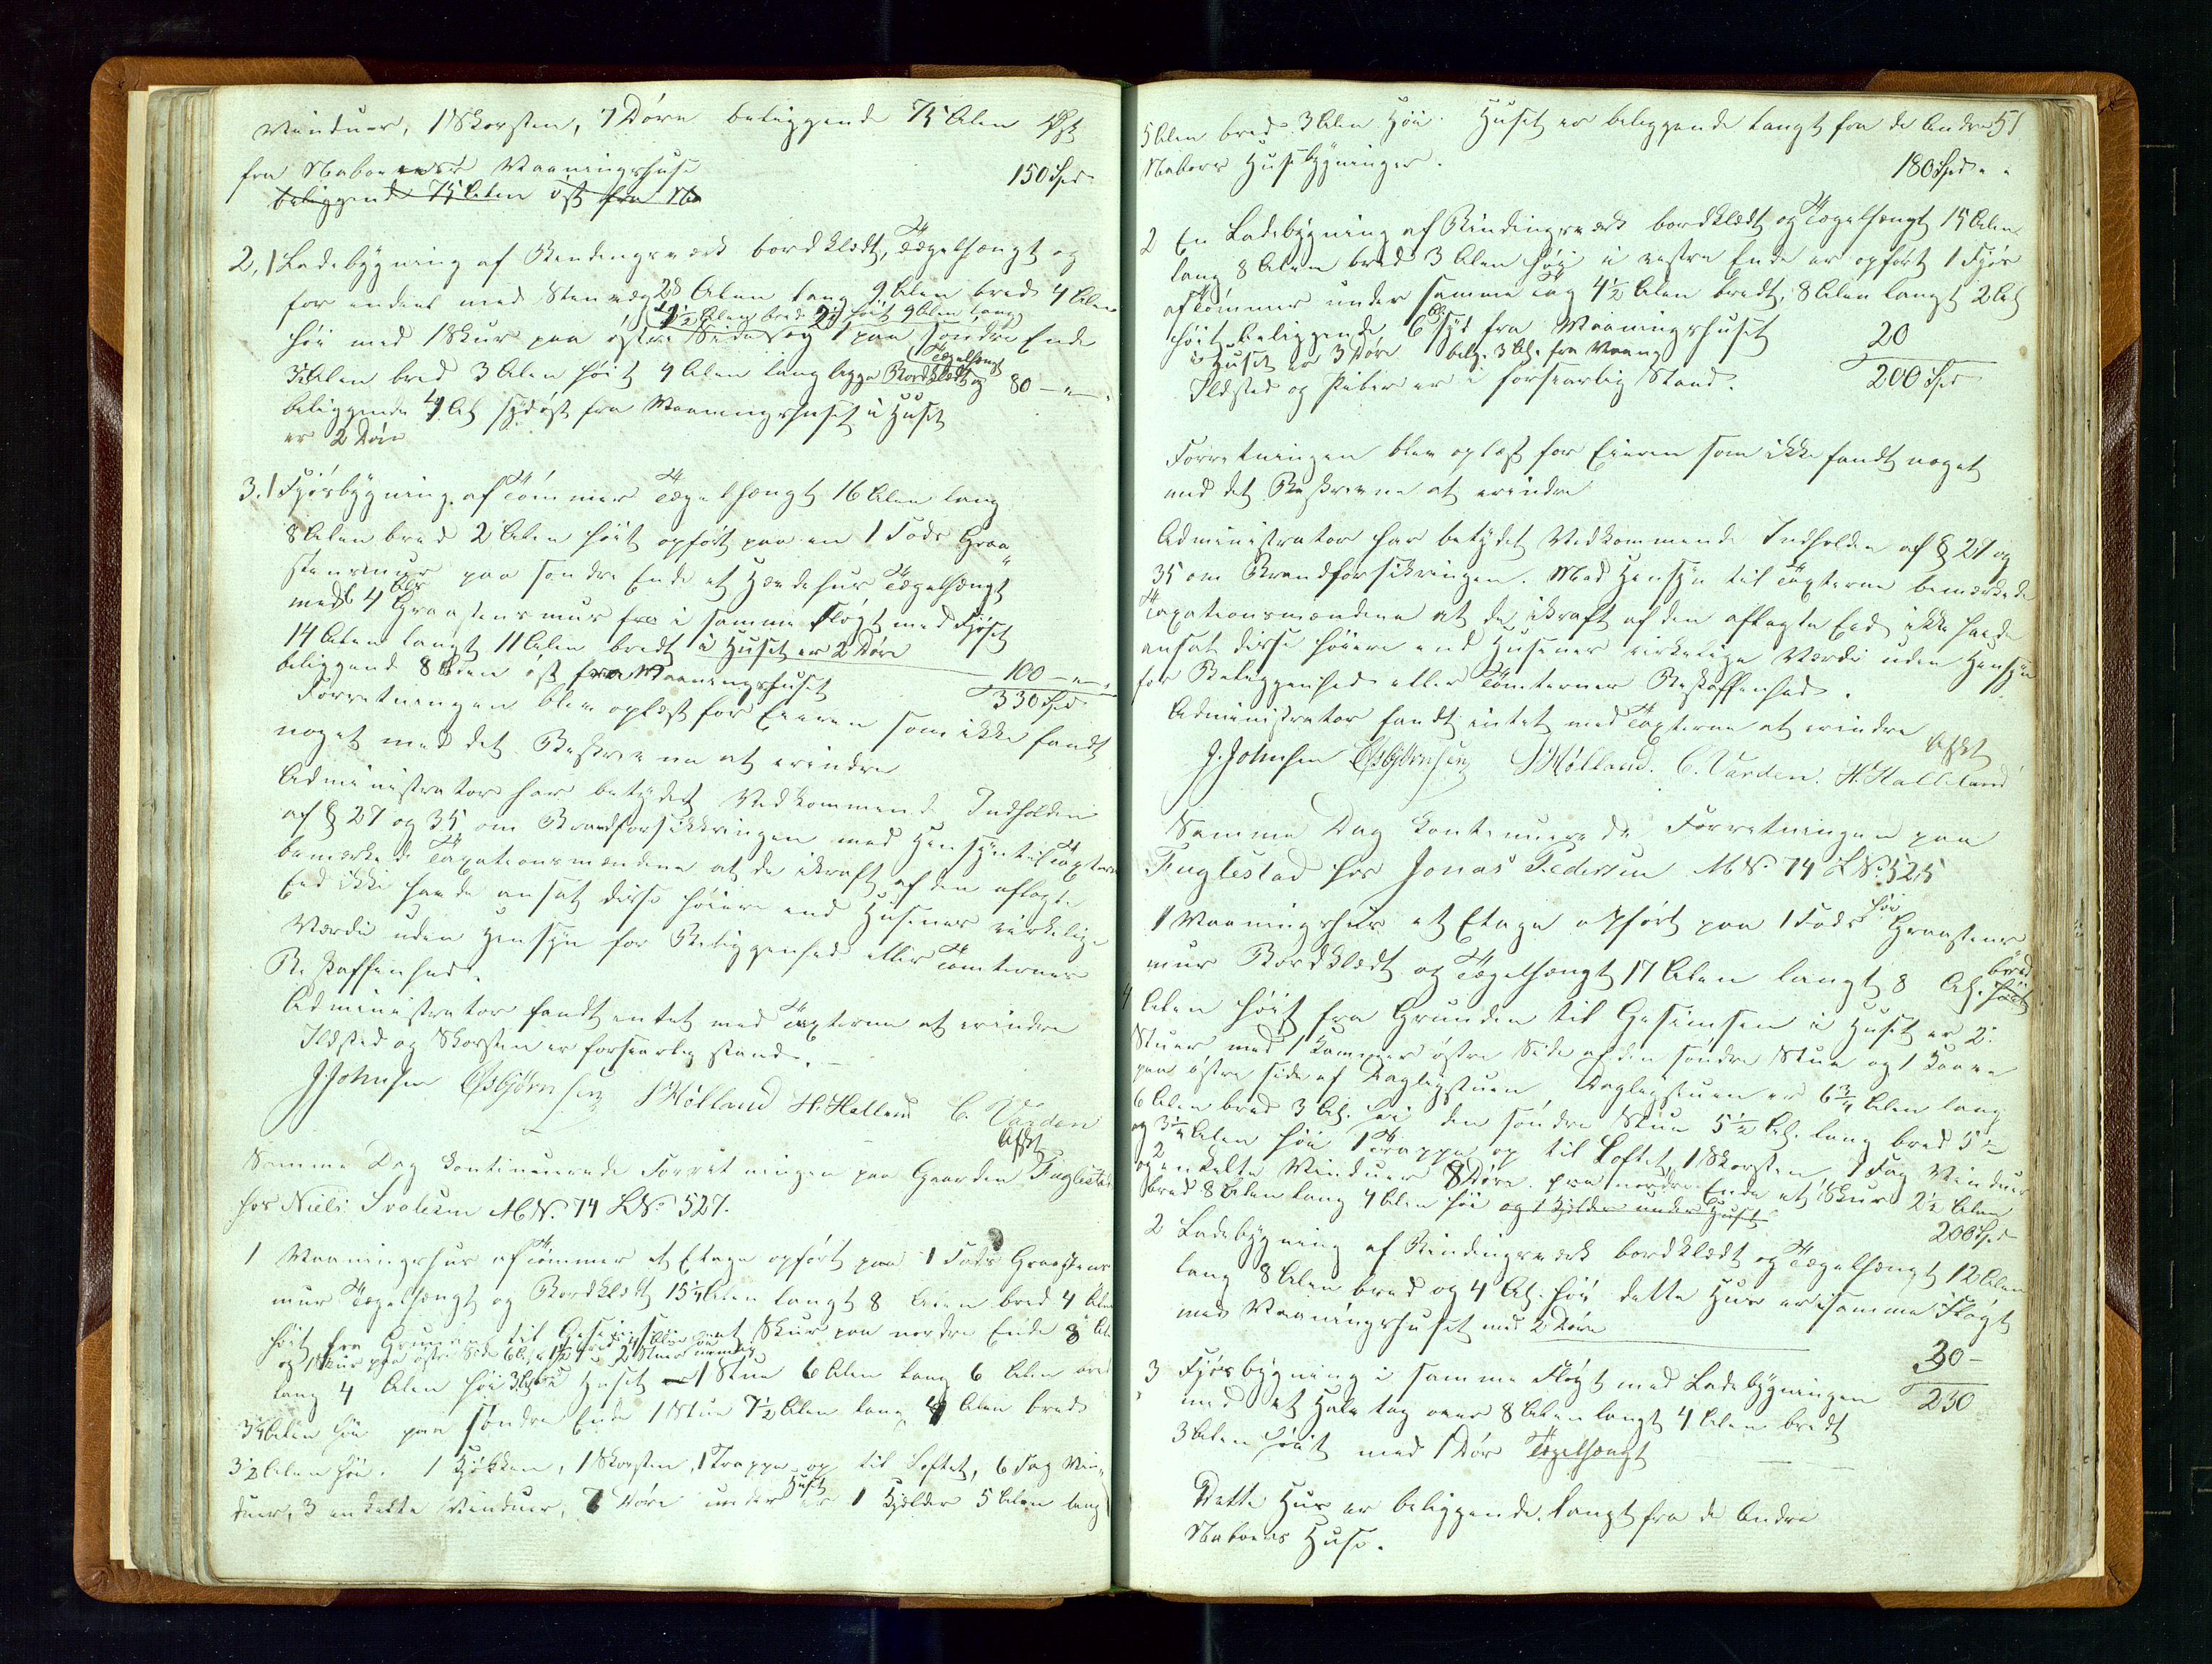 Vinduer, 1 Skorsten, 7 Døre beliggende 75 Alen Øst
fra Naboernes Vaaningshuse 150 Spd
beliggende 75 Alen øst fra Na
2, 1 Ladebygning af Bendingsværk bordklædt, Tægelhængt og
for endeel med Stenvæg 28 Alen lang 9 Alen bred 4 Alen
1½ Alen bred 2½ høit 9 Alen lang
høi med 1 Skur paa østre Side og 1 paa søndre Ende
Tægelhængt
3 Alen bred 3 Alen høit 9 Alen lang begge Bordklædt og 80
beliggende 4 Al sydøst fra Vaaningshuset i Huset
er 2 Døre
3. 1 Fjøsbygning af Tømmer Tægelhængt 16 Alen lang
8 Alen bred 2 Alen høit opført paa en 1 Fods Graa
stensmur paa søndre Ende et Hældehus Tægelhængt
med 4 Graastensmur i samme Fløgt med Fjøset
14 Alen langt 11 Alen bredt i Huset er 2 Døre
beliggend 8 Alen øst fra Vaaningshuset 100
330 Spd
Forretningen blev oplæst for Eieren som ikke fandt
noget med det Beskrevne at erindre
Administrator har betydet Vedkommende Indholden
af § 27 og 35 om Brandforsikkringen med Hensyn til Taxterne
bemærkede Taxationsmændene at de ikraft af den aflagte
Eed ikke havde ansat disse høiere end Husenes virkelige
Værdie uden Hensyn for Beliggenhed eller Tomternes
Beskaffenhed.
Administrator fandt intet med Taxterne at erindre
Ildsted og Skorsten er forsvarlig stand.
J. Johnsen Esbjørnsen S Hølland H. Halleland C. Varden
Afskt
Samme Dag kontinuerede Forretningen paa Gaarden Fuglestad
hos Niels Svalesen M.N. 74 L.No 527.
1 Vaaningshus af Tømmer et Etage opført paa 1 Fods Graastens
mur Tægelhængt og Bordklædt 15¼ Alen langt 8 Alen bred 4 Alen
høit fra Grunden til Gesimsen et Skur paa nordre Ende 8 Al
og 1 Skur paa østre Side 2 Stuer nemlig
lang 4 Alen høi i Huset 1 Stue 6 Alen lang 6 Alen bred
3¼ Alen høi paa søndre Ende 1 Stue 7½ Alen lang 4 Alen bred
3½ Alen høi. 1 Kjøkken, 1 Skorsten, 1 Trappe op til Loftet, 6 Fag Vin
Huset
duer, 3 enkelte Vinduer, 7 Døre under er 1 Kjelder 5 Alen lang
5 Alen bred 3 Alen høi. Huset er beliggende langt fra de Andre 51
Nabors Husebygninger. 180 Spd
2 En Ladebygning af Bindingsværk bordklædt og Tægelhængt 15 Alen
lang 8 Alen bred 3 Alen høi i vestre Ende er opført 1 Fjøs
af Tømmer under samme Tag 4½ Alen bredt, 8 Alen langt 2 Al
høit beliggende 6 syd fra Vaaningshuset 20
i Huset er 3 Døre belg. 3 Al. fra Vaaning
Ildsted og Piber er i forsvarlig Stand. 200 Spd
Forretningen blev oplæst for Eieren som ikke fandt noget
med det Beskrevne at erindre
Administrator har betydet Vedkommende Indholden af § 27 og
35 om Brandforsikringen. Med Hensyn til Taxterne bemærkede
Taxationsmændene at de ikraft af den aflagte Eed ikke havde
ansat disse høiere end Husenes virkelige Værdie uden Hensyn
for Beliggenhed eller Tomternes Beskaffenhed.
Administrator fandt intet med Taxterne at erindre
Afskt
J. Johnsen Esbjørnsen S Hølland. C. Varden. H. Halleland
Samme Dag kontinuerede Forretningen paa
Fuglestad hos Jonas Pedersen M.N. 74 L.No 525
høi
1 Vaaningshus et Etage opført paa 1 Fods Graastens
bred
mur Bordklædt og Tægelhængt 17 Alen langt 8 Al. høit
4 Alen høit fra Grunden til Gesimsen i Huset er 2
Stuer med 1 Kammer østre Side af den søndre Stue og 1 Kaave
paa østre side af Dagligstuen Dagligstuen er 6¾ Alen lang
6 Alen bred 3 Al. høi den søndre Stue 5½ Al. lang bred 5½
og 3¼ Alen høi 1 Trappe op til Loftet, 1 Skorsten, 7 Fag Vinduer
og 2 enkelte Vinduer 8 Døre paa nordre Ende et Skur 2½ Alen
bred 8 Alen lang 4 Alen høi og 1 Kjelder under Huset
200 Spd
2 Ladebygning af Bindingsværk bordklædt og Tægelhængt 12 Alen
lang 8 Alen bred og 4 Al. høi dette Hus er i samme Fløgt
med Vaaningshuset med 2 Døre
30
3 Fjøsbygning i samme Fløgt med Ladebygningen
med et Halvtag over 8 Alen langt 4 Alen bredt 230
3 Alen høit med 1 Dør Tægelhængt
Dette Hus er beliggende langt fra de Andre
Naboers Huse.